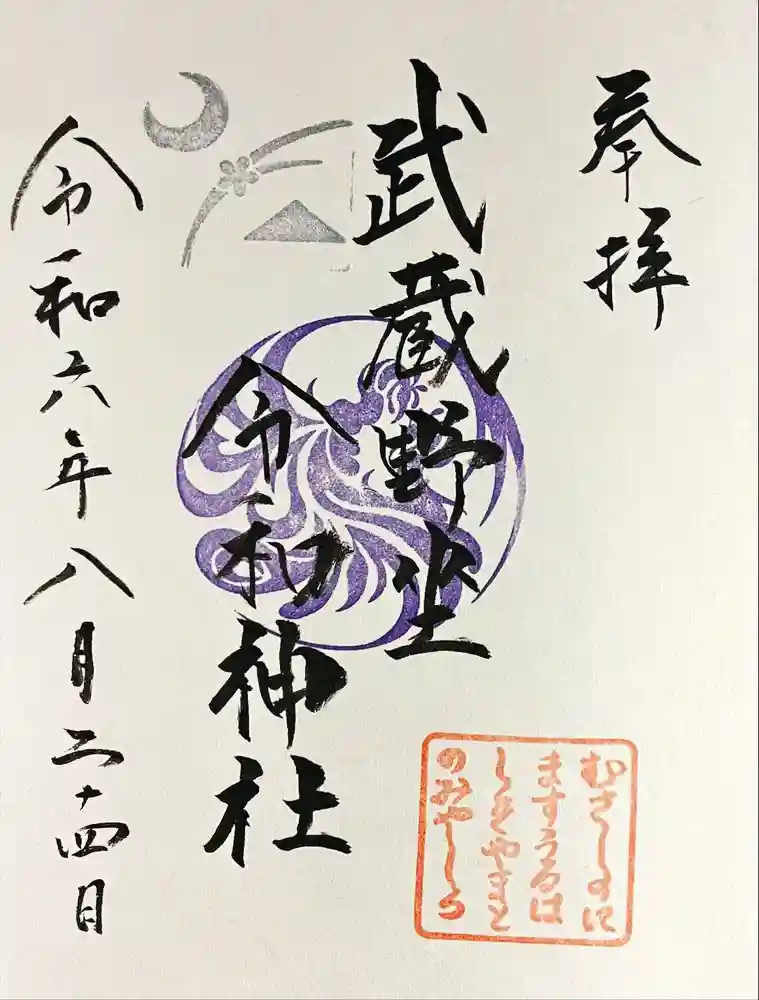 奉拝
武蔵野坐
令和神社
令和六年八月二十四日
むさしのに
ますうるは
しきやまと
のみやしろ